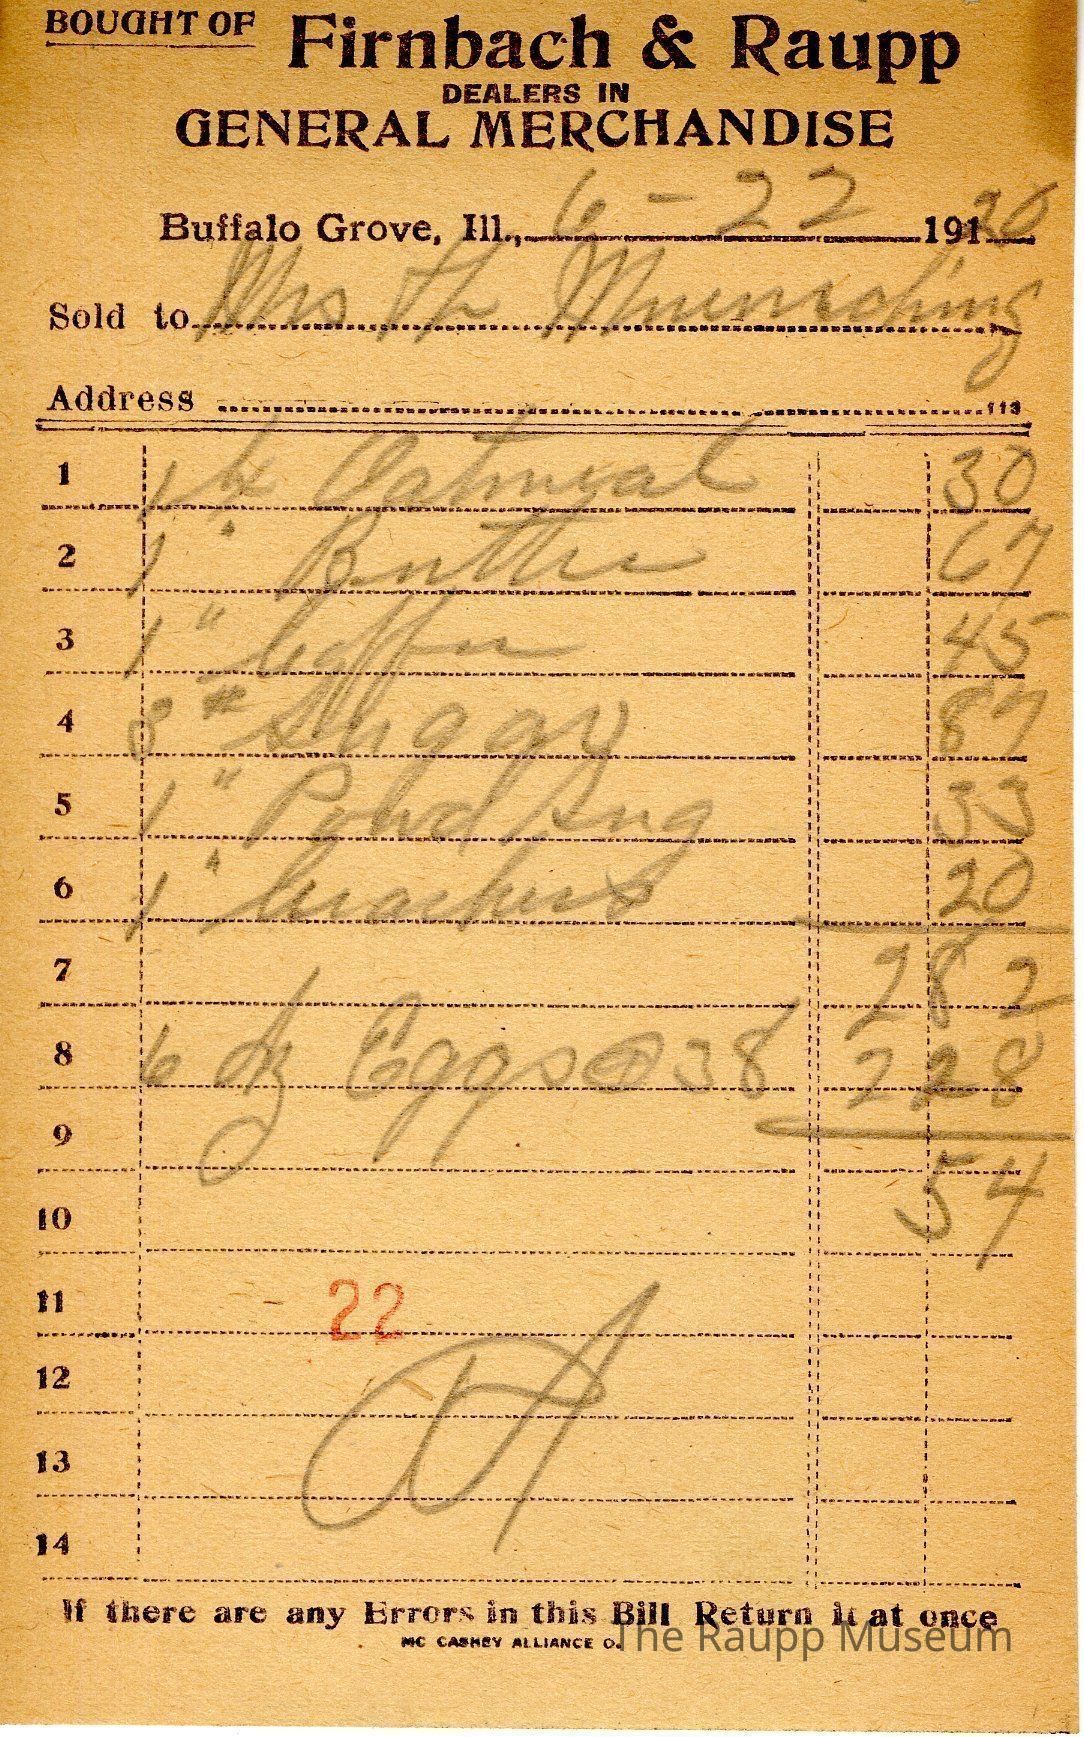 BOUGHT OF Firnbach & Raupp
DEALERS IN
GENERAL MERCHANDISE
Buffalo Grove, Ill., 6-22 191 26
Sold to Mrs Th
Address 113
1 1 # Oatmeal 30
2 1 " Butter 67
3 1 " Coffee 45
4 8 # Suggar 87
5 1 " Powd Sug 33
6 1 " Crackers 20
7 2 82
8 6 dz Eggs @ 38 2 28
9
10 54
11 22
12
13
14
If there are any Errors in this Bill Return it at once
MC CASKEY ALLIANCE O.
The Raupp Museum